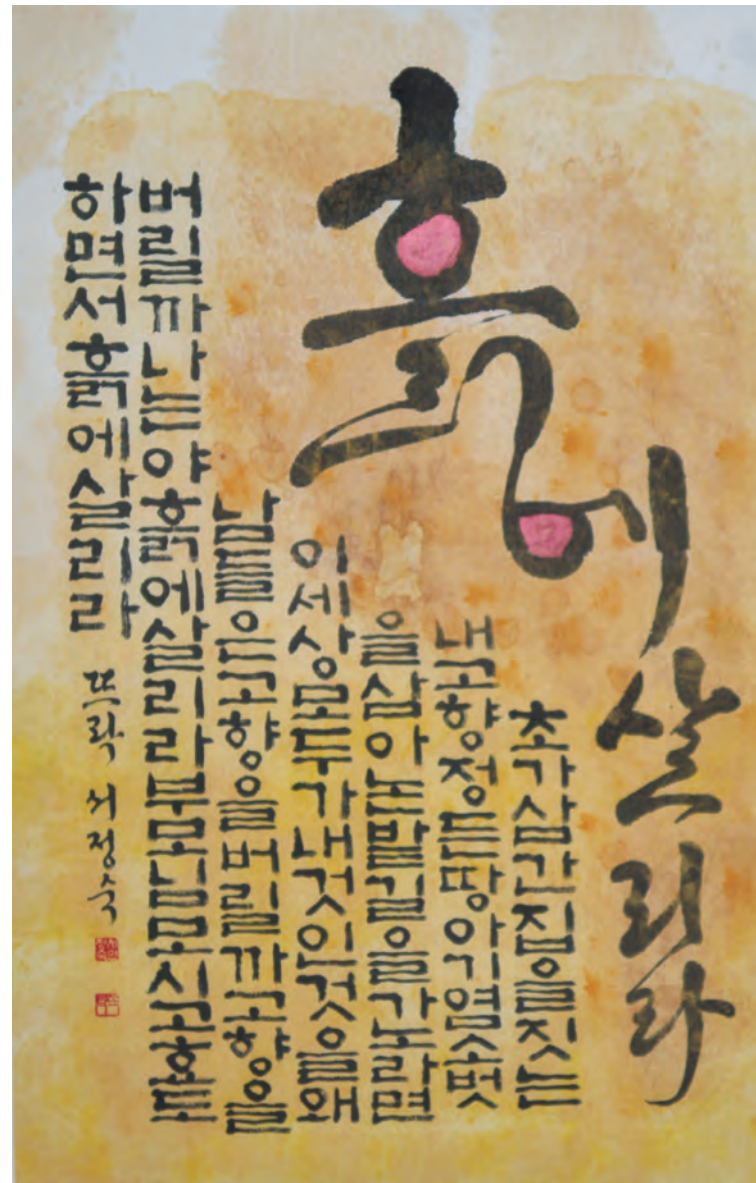 흙에살리라
초가삼간집을짓는
내고향정든땅아기염소벗
을삼아논밭길을가노라면
이세상모두가내것인것을왜
남들은고향을버릴까고향을
버릴까나는야흙에살리라부모님모시고효도
하면서흙에살리라
뜨락 서정숙